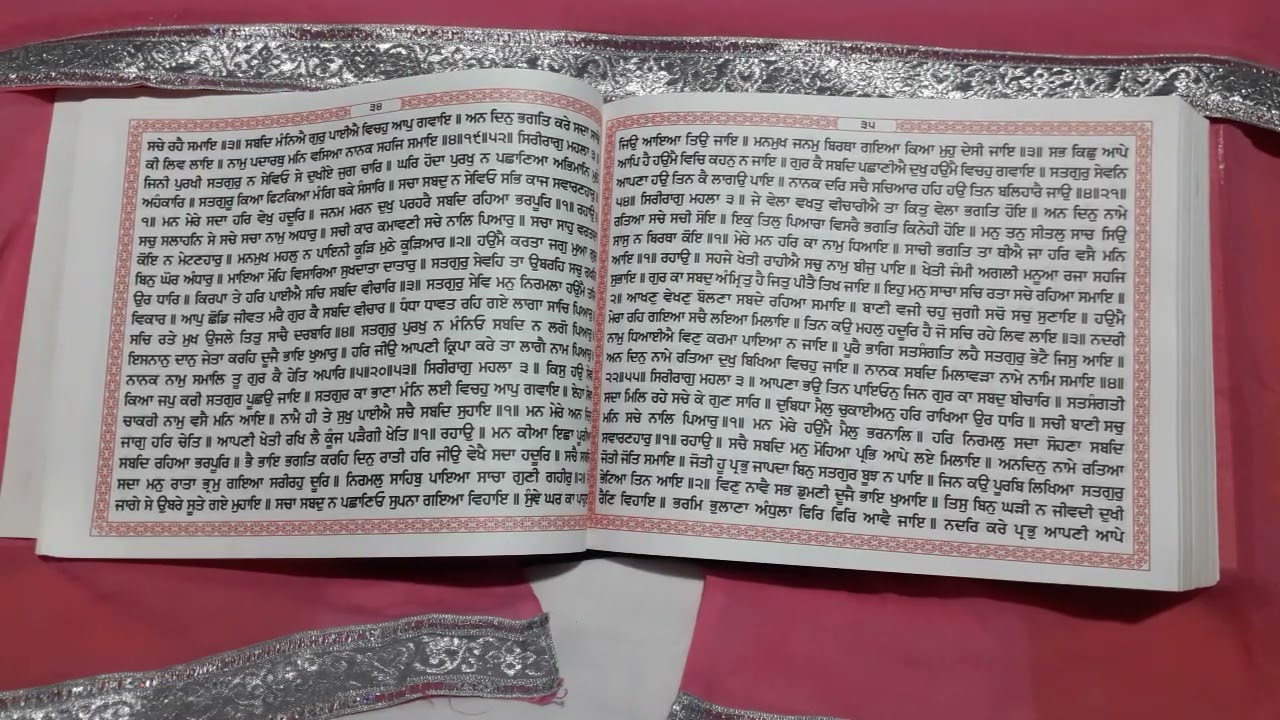 ੩੪
ਸਚੇ ਰਹੈ ਸਮਾਇ ॥੩॥ ਸਬਦਿ ਮੰਨਿਐ ਗੁਰੁ ਪਾਈਐ ਵਿਚਹੁ ਆਪੁ ਗਵਾਇ ॥ ਅਨ ਦਿਨੁ ਭਗਤਿ ਕਰੇ ਸਦਾ ਸਾਚੇ
ਕੀ ਲਿਵ ਲਾਇ ॥ ਨਾਮੁ ਪਦਾਰਥੁ ਮਨਿ ਵਸਿਆ ਨਾਨਕ ਸਹਜਿ ਸਮਾਇ ॥੪॥੧੯॥੫੨॥ ਸਿਰੀਰਾਗੁ ਮਹਲਾ ੩
ਜਿਨੀ ਪੁਰਖੀ ਸਤਗੁਰੁ ਨ ਸੇਵਿਓ ਸੇ ਦੁਖੀਏ ਜੁਗ ਚਾਰਿ ॥ ਘਰਿ ਹੋਦਾ ਪੁਰਖੁ ਨ ਪਛਾਣਿਆ ਅਭਿਮਾਨਿ
ਅਹੰਕਾਰਿ ॥ ਸਤਗੁਰੂ ਕਿਆ ਫਿਟਕਿਆ ਮੰਗਿ ਥਕੇ ਸੰਸਾਰਿ ॥ ਸਚਾ ਸਬਦੁ ਨ ਸੇਵਿਓ ਸਭਿ ਕਾਜ ਸਵਾਰਣਹਾਰੁ
੧॥ ਮਨ ਮੇਰੇ ਸਦਾ ਹਰਿ ਵੇਖੁ ਹਦੂਰਿ ॥ ਜਨਮ ਮਰਨ ਦੁਖੁ ਪਰਹਰੈ ਸਬਦਿ ਰਹਿਆ ਭਰਪੂਰਿ ॥੧॥ ਰਹਾਉ
ਸਚੁ ਸਲਾਹਨਿ ਸੇ ਸਚੇ ਸਚਾ ਨਾਮੁ ਅਧਾਰੁ ॥ ਸਚੀ ਕਾਰ ਕਮਾਵਣੀ ਸਚੇ ਨਾਲਿ ਪਿਆਰੁ ॥ ਸਚਾ ਸਾਹੁ ਵਰਤਦਾ
ਕੋਇ ਨ ਮੇਟਣਹਾਰੁ ॥ ਮਨਮੁਖ ਮਹਲੁ ਨ ਪਾਇਨੀ ਕੂੜਿ ਮੁਠੇ ਕੂੜਿਆਰ ॥੨॥ ਹਉਮੈ ਕਰਤਾ ਜਗੁ ਮੁਆ ਗੁਰ
ਬਿਨੁ ਘੋਰ ਅੰਧਾਰੁ ॥ ਮਾਇਆ ਮੋਹਿ ਵਿਸਾਰਿਆ ਸੁਖਦਾਤਾ ਦਾਤਾਰੁ ॥ ਸਤਗੁਰੁ ਸੇਵਹਿ ਤਾ ਉਬਰਹਿ ਸਚੁ ਰਖਹਿ
ਉਰ ਧਾਰਿ ॥ ਕਿਰਪਾ ਤੇ ਹਰਿ ਪਾਈਐ ਸਚਿ ਸਬਦਿ ਵੀਚਾਰਿ ॥੩॥ ਸਤਗੁਰੁ ਸੇਵਿ ਮਨੁ ਨਿਰਮਲਾ ਹਉਮੈ ਤਜਿ
ਵਿਕਾਰ ॥ ਆਪੁ ਛੋਡਿ ਜੀਵਤ ਮਰੈ ਗੁਰ ਕੈ ਸਬਦਿ ਵੀਚਾਰ ॥ ਧੰਧਾ ਧਾਵਤ ਰਹਿ ਗਏ ਲਾਗਾ ਸਾਚਿ ਪਿਆਰੁ
ਸਚਿ ਰਤੇ ਮੁਖ ਉਜਲੇ ਤਿਤੁ ਸਾਚੈ ਦਰਬਾਰਿ ॥੪॥ ਸਤਗੁਰੁ ਪੁਰਖੁ ਨ ਮੰਨਿਓ ਸਬਦਿ ਨ ਲਗੋ ਪਿਆਰੁ
ਇਸਨਾਨੁ ਦਾਨੁ ਜੇਤਾ ਕਰਹਿ ਦੂਜੈ ਭਾਇ ਖੁਆਰੁ ॥ ਹਰਿ ਜੀਉ ਆਪਣੀ ਕ੍ਰਿਪਾ ਕਰੇ ਤਾ ਲਾਗੈ ਨਾਮ ਪਿਆਰੁ
ਨਾਨਕ ਨਾਮੁ ਸਮਾਲਿ ਤੂ ਗੁਰ ਕੈ ਹੇਤਿ ਅਪਾਰਿ ॥੫॥੨੦॥੫੩॥ ਸਿਰੀਰਾਗੁ ਮਹਲਾ ੩ ॥ ਕਿਸੁ ਹਉ ਸੇਵੀ
ਕਿਆ ਜਪੁ ਕਰੀ ਸਤਗੁਰ ਪੂਛਉ ਜਾਇ ॥ ਸਤਗੁਰ ਕਾ ਭਾਣਾ ਮੰਨਿ ਲਈ ਵਿਚਹੁ ਆਪੁ ਗਵਾਇ ॥ ਏਹਾ ਸੇਵਾ
ਚਾਕਰੀ ਨਾਮੁ ਵਸੈ ਮਨਿ ਆਇ ॥ ਨਾਮੈ ਹੀ ਤੇ ਸੁਖੁ ਪਾਈਐ ਸਚੈ ਸਬਦਿ ਸੁਹਾਇ ॥੧॥ ਮਨ ਮੇਰੇ ਅਨ ਦਿਨੁ
ਜਾਗੁ ਹਰਿ ਚੇਤਿ ॥ ਆਪਣੀ ਖੇਤੀ ਰਖਿ ਲੈ ਕੂੰਜ ਪੜੈਗੀ ਖੇਤਿ ॥੧॥ ਰਹਾਉ ॥ ਮਨ ਕੀਆ ਇਛਾ ਪੂਰੀਆ
ਸਬਦਿ ਰਹਿਆ ਭਰਪੂਰਿ ॥ ਭੈ ਭਾਇ ਭਗਤਿ ਕਰਹਿ ਦਿਨੁ ਰਾਤੀ ਹਰਿ ਜੀਉ ਵੇਖੈ ਸਦਾ ਹਦੂਰਿ ॥ ਸਚੈ ਸਬਦਿ
ਸਦਾ ਮਨੁ ਰਾਤਾ ਭ੍ਰਮੁ ਗਇਆ ਸਰੀਰਹੁ ਦੂਰਿ ॥ ਨਿਰਮਲੁ ਸਾਹਿਬੁ ਪਾਇਆ ਸਾਚਾ ਗੁਣੀ ਗਹੀਰੁ ॥੨॥
ਜਾਗੇ ਸੇ ਉਬਰੇ ਸੂਤੇ ਗਏ ਮੁਹਾਇ ॥ ਸਚਾ ਸਬਦੁ ਨ ਪਛਾਣਿਓ ਸੁਪਨਾ ਗਇਆ ਵਿਹਾਇ ॥ ਸੁੰਞੇ ਘਰ ਕਾ ਪਾਹੁਣਾ
੩੫
ਜਿਉ ਆਇਆ ਤਿਉ ਜਾਇ ॥ ਮਨਮੁਖ ਜਨਮੁ ਬਿਰਥਾ ਗਇਆ ਕਿਆ ਮੁਹੁ ਦੇਸੀ ਜਾਇ ॥੩॥ ਸਭ ਕਿਛੁ ਆਪੇ
ਆਪਿ ਹੈ ਹਉਮੈ ਵਿਚਿ ਕਹਨੁ ਨ ਜਾਇ ॥ ਗੁਰ ਕੈ ਸਬਦਿ ਪਛਾਣੀਐ ਦੁਖੁ ਹਉਮੈ ਵਿਚਹੁ ਗਵਾਇ ॥ ਸਤਗੁਰੁ ਸੇਵਨਿ
ਆਪਣਾ ਹਉ ਤਿਨ ਕੈ ਲਾਗਉ ਪਾਇ ॥ ਨਾਨਕ ਦਰਿ ਸਚੈ ਸਚਿਆਰ ਹਹਿ ਹਉ ਤਿਨ ਬਲਿਹਾਰੈ ਜਾਉ ॥੪॥੨੧॥
੫੪॥ ਸਿਰੀਰਾਗੁ ਮਹਲਾ ੩ ॥ ਜੇ ਵੇਲਾ ਵਖਤੁ ਵੀਚਾਰੀਐ ਤਾ ਕਿਤੁ ਵੇਲਾ ਭਗਤਿ ਹੋਇ ॥ ਅਨ ਦਿਨੁ ਨਾਮੇ
ਰਤਿਆ ਸਚੇ ਸਚੀ ਸੋਇ ॥ ਇਕੁ ਤਿਲੁ ਪਿਆਰਾ ਵਿਸਰੈ ਭਗਤਿ ਕਿਨੇਹੀ ਹੋਇ ॥ ਮਨੁ ਤਨੁ ਸੀਤਲੁ ਸਾਚ ਸਿਉ
ਸਾਸੁ ਨ ਬਿਰਥਾ ਕੋਇ ॥੧॥ ਮੇਰੇ ਮਨ ਹਰਿ ਕਾ ਨਾਮੁ ਧਿਆਇ ॥ ਸਾਚੀ ਭਗਤਿ ਤਾ ਥੀਐ ਜਾ ਹਰਿ ਵਸੈ ਮਨਿ
ਆਇ ॥੧॥ ਰਹਾਉ ॥ ਸਹਜੇ ਖੇਤੀ ਰਾਹੀਐ ਸਚੁ ਨਾਮੁ ਬੀਜੁ ਪਾਇ ॥ ਖੇਤੀ ਜੰਮੀ ਅਗਲੀ ਮਨੂਆ ਰਜਾ ਸਹਜਿ
ਸੁਭਾਇ ॥ ਗੁਰ ਕਾ ਸਬਦੁ ਅੰਮ੍ਰਿਤੁ ਹੈ ਜਿਤੁ ਪੀਤੈ ਤਿਖ ਜਾਇ ॥ ਇਹੁ ਮਨੁ ਸਾਚਾ ਸਚਿ ਰਤਾ ਸਚੇ ਰਹਿਆ ਸਮਾਇ ॥
੨॥ ਆਖਣੁ ਵੇਖਣੁ ਬੋਲਣਾ ਸਬਦੇ ਰਹਿਆ ਸਮਾਇ ॥ ਬਾਣੀ ਵਜੀ ਚਹੁ ਜੁਗੀ ਸਚੋ ਸਚੁ ਸੁਣਾਇ ॥ ਹਉਮੈ
ਮੇਰਾ ਰਹਿ ਗਇਆ ਸਚੈ ਲਇਆ ਮਿਲਾਇ ॥ ਤਿਨ ਕਉ ਮਹਲੁ ਹਦੂਰਿ ਹੈ ਜੋ ਸਚਿ ਰਹੇ ਲਿਵ ਲਾਇ ॥੩॥ ਨਦਰੀ
ਨਾਮੁ ਧਿਆਈਐ ਵਿਣੁ ਕਰਮਾ ਪਾਇਆ ਨ ਜਾਇ ॥ ਪੂਰੈ ਭਾਗਿ ਸਤਸੰਗਤਿ ਲਹੈ ਸਤਗੁਰੁ ਭੇਟੈ ਜਿਸੁ ਆਇ ॥
ਅਨ ਦਿਨੁ ਨਾਮੇ ਰਤਿਆ ਦੁਖੁ ਬਿਖਿਆ ਵਿਚਹੁ ਜਾਇ ॥ ਨਾਨਕ ਸਬਦਿ ਮਿਲਾਵੜਾ ਨਾਮੇ ਨਾਮਿ ਸਮਾਇ ॥੪॥
੨੨॥੫੫॥ ਸਿਰੀਰਾਗੁ ਮਹਲਾ ੩ ॥ ਆਪਣਾ ਭਉ ਤਿਨ ਪਾਇਓਨੁ ਜਿਨ ਗੁਰ ਕਾ ਸਬਦੁ ਬੀਚਾਰਿ ॥ ਸਤਸੰਗਤੀ
ਸਦਾ ਮਿਲਿ ਰਹੇ ਸਚੇ ਕੇ ਗੁਣ ਸਾਰਿ ॥ ਦੁਬਿਧਾ ਮੈਲੁ ਚੁਕਾਈਅਨੁ ਹਰਿ ਰਾਖਿਆ ਉਰ ਧਾਰਿ ॥ ਸਚੀ ਬਾਣੀ ਸਚੁ
ਮਨਿ ਸਚੇ ਨਾਲਿ ਪਿਆਰੁ ॥੧॥ ਮਨ ਮੇਰੇ ਹਉਮੈ ਮੈਲੁ ਭਰਨਾਲਿ ॥ ਹਰਿ ਨਿਰਮਲੁ ਸਦਾ ਸੋਹਣਾ ਸਬਦਿ
ਸਵਾਰਣਹਾਰੁ ॥੧॥ ਰਹਾਉ ॥ ਸਚੈ ਸਬਦਿ ਮਨੁ ਮੋਹਿਆ ਪ੍ਰਭਿ ਆਪੇ ਲਏ ਮਿਲਾਇ ॥ ਅਨਦਿਨੁ ਨਾਮੇ ਰਤਿਆ
ਜੋਤੀ ਜੋਤਿ ਸਮਾਇ ॥ ਜੋਤੀ ਹੂ ਪ੍ਰਭੁ ਜਾਪਦਾ ਬਿਨੁ ਸਤਗੁਰ ਬੂਝ ਨ ਪਾਇ ॥ ਜਿਨ ਕਉ ਪੂਰਬਿ ਲਿਖਿਆ ਸਤਗੁਰੁ
ਭੇਟਿਆ ਤਿਨ ਆਇ ॥੨॥ ਵਿਣੁ ਨਾਵੈ ਸਭ ਡੁਮਣੀ ਦੂਜੈ ਭਾਇ ਖੁਆਇ ॥ ਤਿਸੁ ਬਿਨੁ ਘੜੀ ਨ ਜੀਵਦੀ ਦੁਖੀ
ਰੈਣਿ ਵਿਹਾਇ ॥ ਭਰਮਿ ਭੁਲਾਣਾ ਅੰਧੁਲਾ ਫਿਰਿ ਫਿਰਿ ਆਵੈ ਜਾਇ ॥ ਨਦਰਿ ਕਰੇ ਪ੍ਰਭੁ ਆਪਣੀ ਆਪੇ